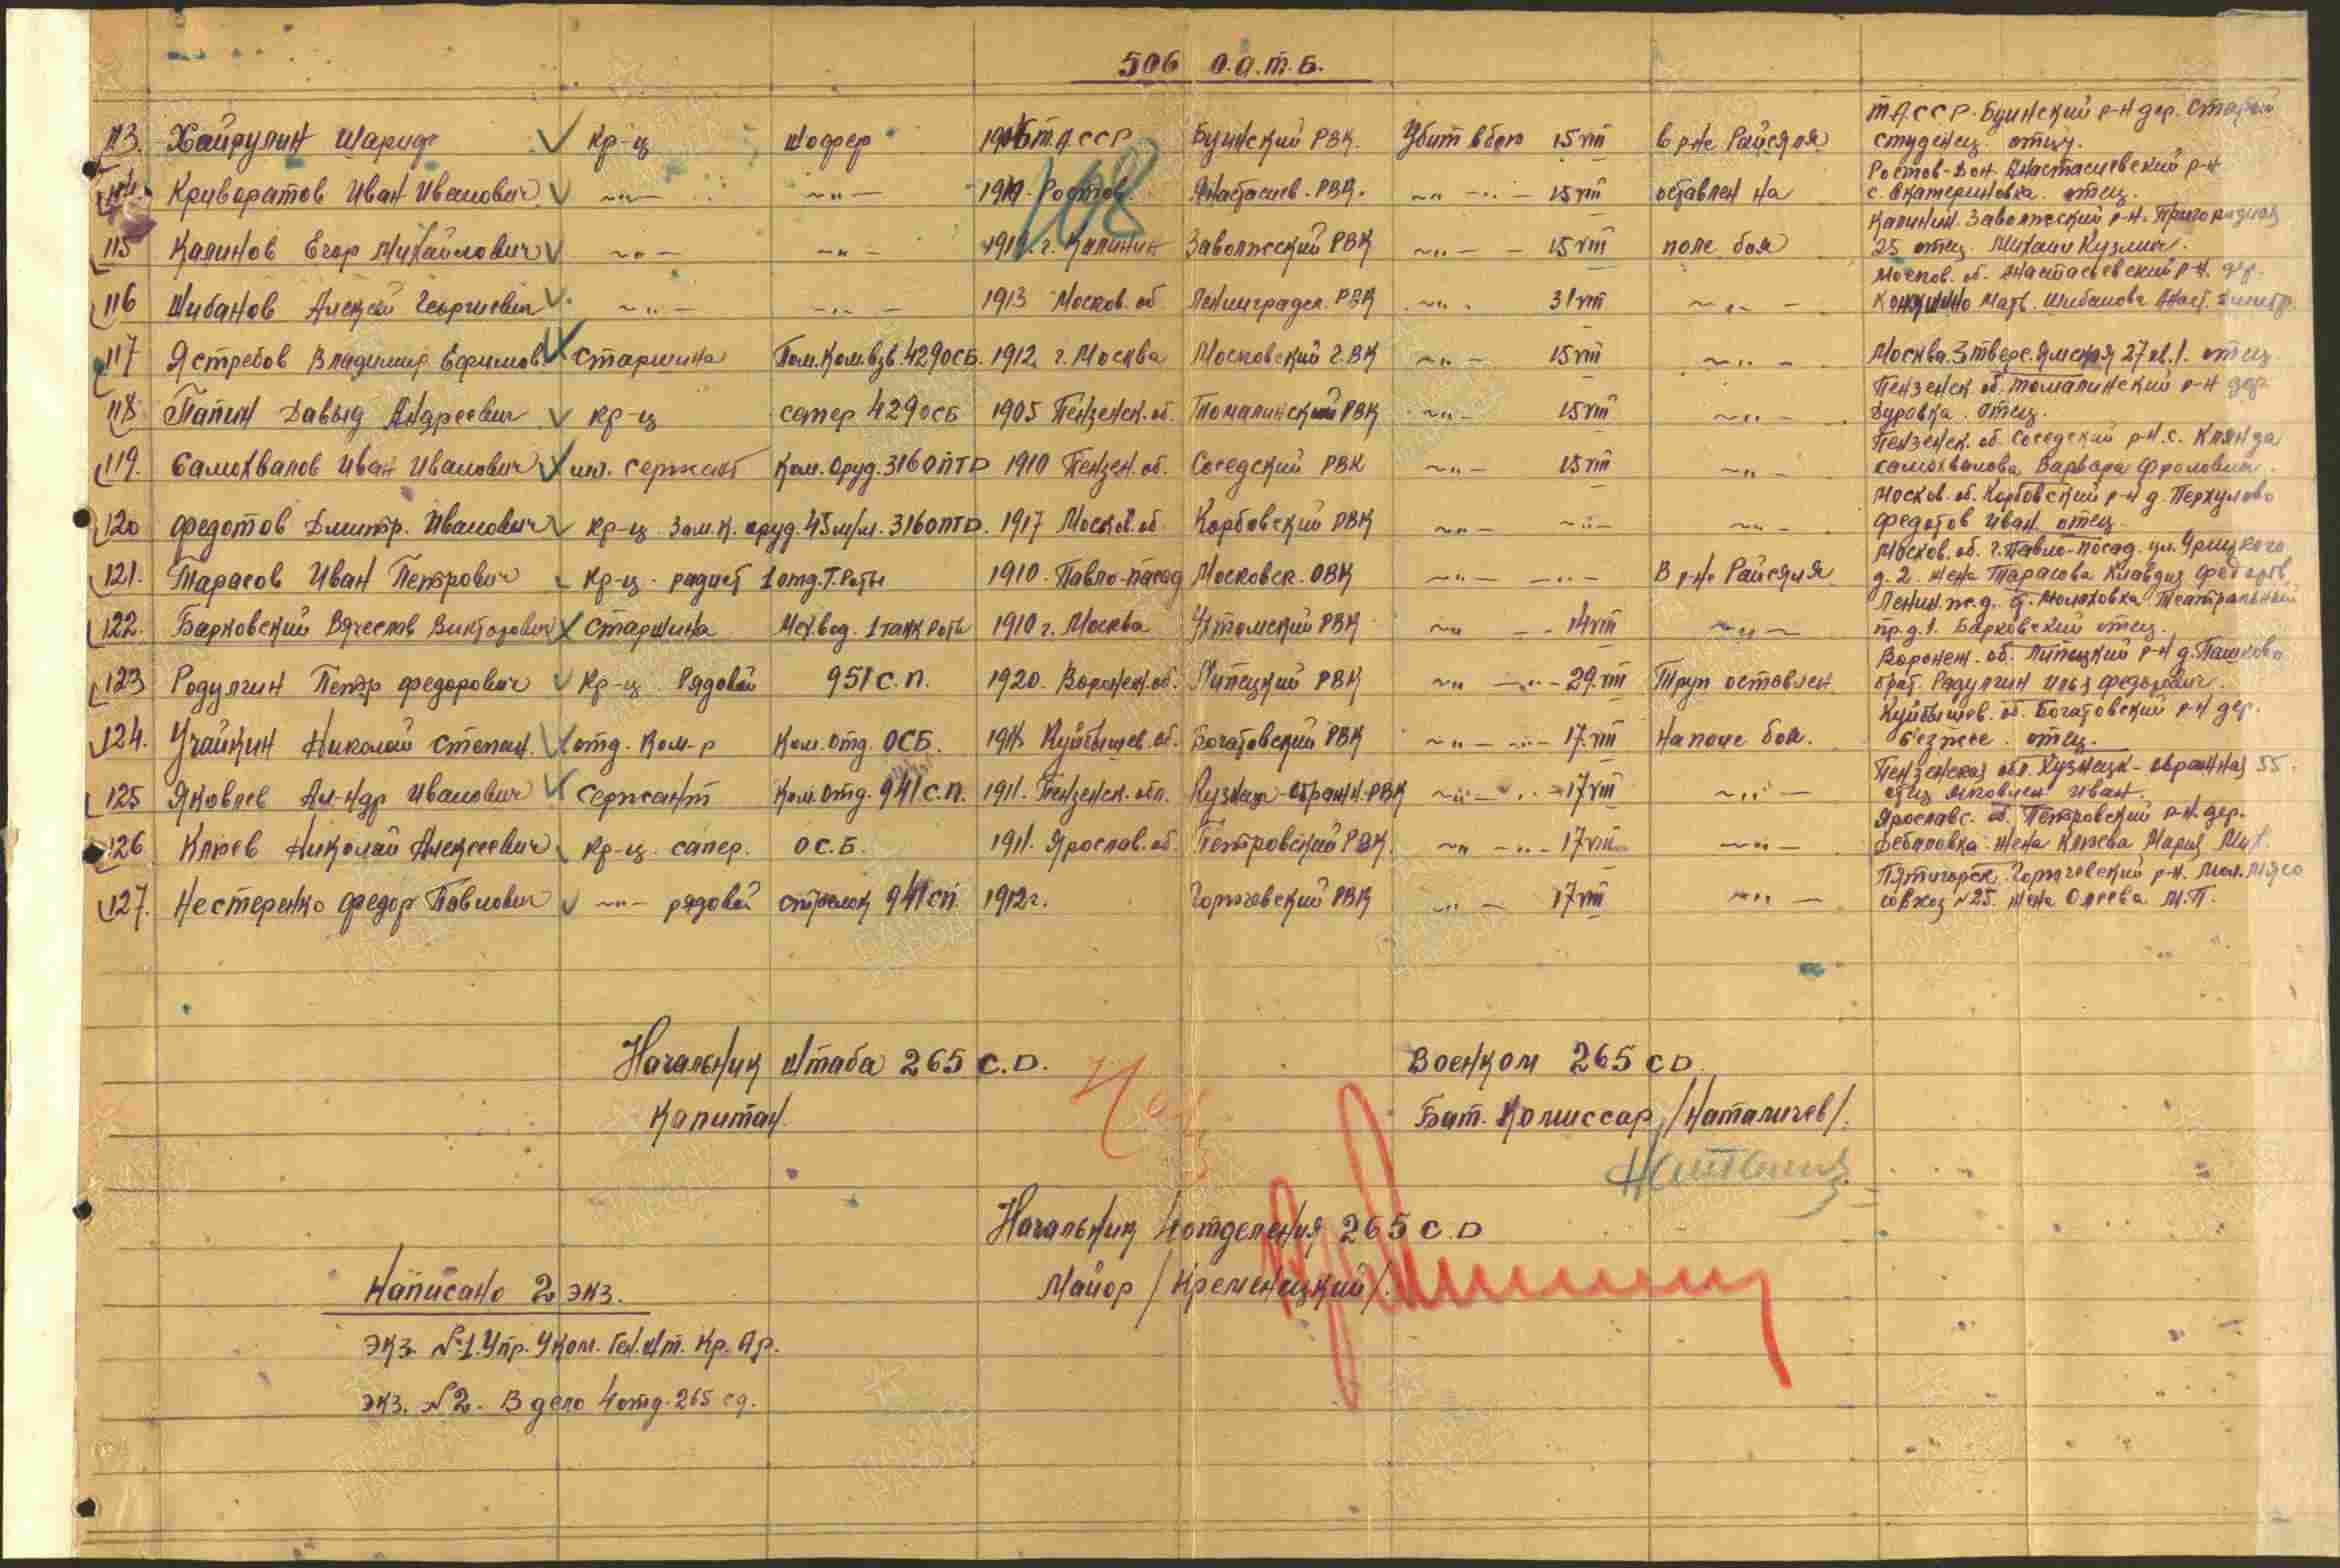 506 О.А.Т.Б.
113. Хайрулин Шариф кр-ц шофер ТАССР Буинский РВК. Убит в бою 15 VIII в р-не Райсяля ТАССР Буинский р-н дер. Старый Студенец. отец.
Криворатов Иван Иванович —"— —"— Ростов. Анастасиев. РВК. —"— 15 VIII оставлен на Ростов-Дон. Анастасиевский р-н с. Екатериновка. отец.
115 Калинов Егор Михайлович —"— —"— г. Калинин Заволжский РВК —"— 15 VIII поле боя Калинин. Заволжский р-н. Пригородная 25 отец. Михаил Кузмич.
116 Шибанов Алексей Георгиевич —"— —"— 1913 Москов. об Ленинградск. РВК —"— 31 VIII —"— Москов. об. р-н. дер. Мать. Шибанова Анаст. Дмитр.
117 Ястребов Владимир Ефимов. Старшина Пом. Ком. взв. 429 ОСБ. 1912 г. Москва Московский Г.ВК —"— 15 VIII —"— Москва. 3 тверс. Ямская 27 кв. 1. отец
118 Папин Давыд Андреевич кр-ц сапер 429 ОСБ 1905 Пензенск. об. Томалинский РВК —"— 15 VIII —"— Пензенск об. Томалинский р-н дер Дуровка. Отец.
119. Самохвалов Иван Иванович мл. сержант Ком. Оруд. 316 ОПТД 1910 Пензен. об. Соседский РВК —"— 15 VIII —"— Пензенск. об. Соседский р-н. с. Кянда Самохвалова Варвара Фроловна.
120 Федотов Дмитр. Иванович кр-ц Зам. К. оруд. 45 м/м. 316 ОПТД. 1917 Москов. об. Корбовский РВК —"— —"— —"— Москов. об. Корбовский р-н д. Перхулово Федотов Иван отец.
121. Тарасов Иван Петрович Кр-ц. радист 1 отд. Т. Роты 1910. Павло-посад Московск. ОВК —"— —"— В р-не Райсяля Москов. об. г. Павло-посад. ул. Урицкого д. 2. жена Тарасова Клавдия Федоров.
122. Барковский Вячеслав Викторович Старшина Мех. вод. 1 танк роты 1910 г. Москва Ухтомский РВК —"— 14 VIII —"— Ленин. ж.д. Театральный пр. д. 1. Барковский отец.
123 Родулгин Петр Федорович Кр-ц. Рядовой 951 С.П. 1920. Воронеж. об. Липецкий РВК —"— 29. VIII Труп оставлен Воронеж. об. Липецкий р-н д. Пашково брат. Радулгин Илья Федорович.
124. Учайкин Николай Степан. отд. Ком-р Ком. отд. ОСБ. Куйбышев. об. Богатовский РВК —"— 17. VIII на поле боя. Куйбышев. об. Богатовский р-н дер. отец.
125 Яковлев Ал-ндр Иванович Сержант Ком. отд. 941 С.П. 1911. Пензенск. обл. РВК —"— 17 VIII —"— Пензенская обл. Кузнецк-овражная 55. отец Яковлев Иван.
126 Клюев Николай Алексеевич Кр-ц. сапер. О С. Б. 1911. Ярослав. об. Петровский РВК. —"— 17 VIII —"— Ярославс. об. Петровский р-н. дер. жена Клюева Мария Мих.
127. Нестеренко Федор Павлович —"— рядовой стрелок 941 сп 1912 г. РВК —"— 17 VIII —"— Пятигорск р-н. совхоз №25. жена М.П.
Начальник Штаба 265 С.Д.
Капитан
Военком 265 СД.
Бат. Комиссар /Наталичев/.
Начальник 4 отделения 265 С.Д
Майор /Кременецкий/.
Написано 2 экз.
Экз. №1. Упр. Уком. Ген. Шт. Кр. Ар.
Экз. №2. В дело 4 отд. 265 сд.